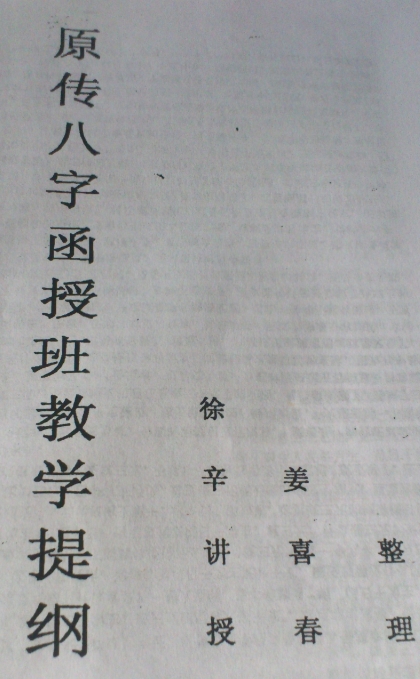 原传八字函授班教学提纲
徐辛讲授
姜喜春
整理